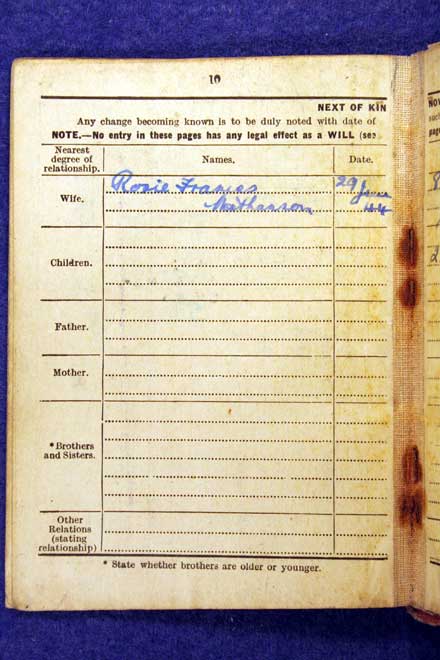 10
NEXT OF KIN
Any change becoming known is to be duly noted with date of
NOTE.—No entry in these pages has any legal effect as a WILL (see
Nearest degree of relationship.
Names.
Date.
Wife.
Rosie Frances 29 June
44
Children.
Father.
Mother.
* Brothers and Sisters.
Other Relations (stating relationship)
* State whether brothers are older or younger.